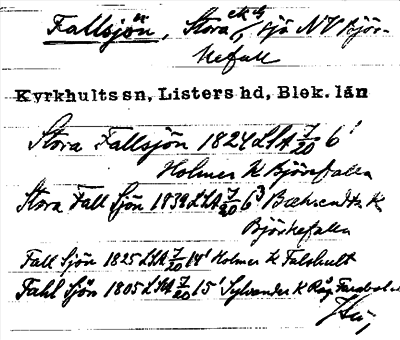 Fallsjön, Stora etc, sjö NV Björ-
kefall
Kyrkhults sn, Listers hd, Blek. län
Stora Fallsjön 1824 LSA 7/20 6¹
Holmer K Björkefalla
Stora Fall Sjön 1839 LSA 7/20 6³ Bæhrendtz K
Björkefalla
Fall Sjön 1825 LSA 7/20 14¹ Holmer K Falshult
Fahl Sjön 1805 LSA 7/20 15¹ Sylvander K